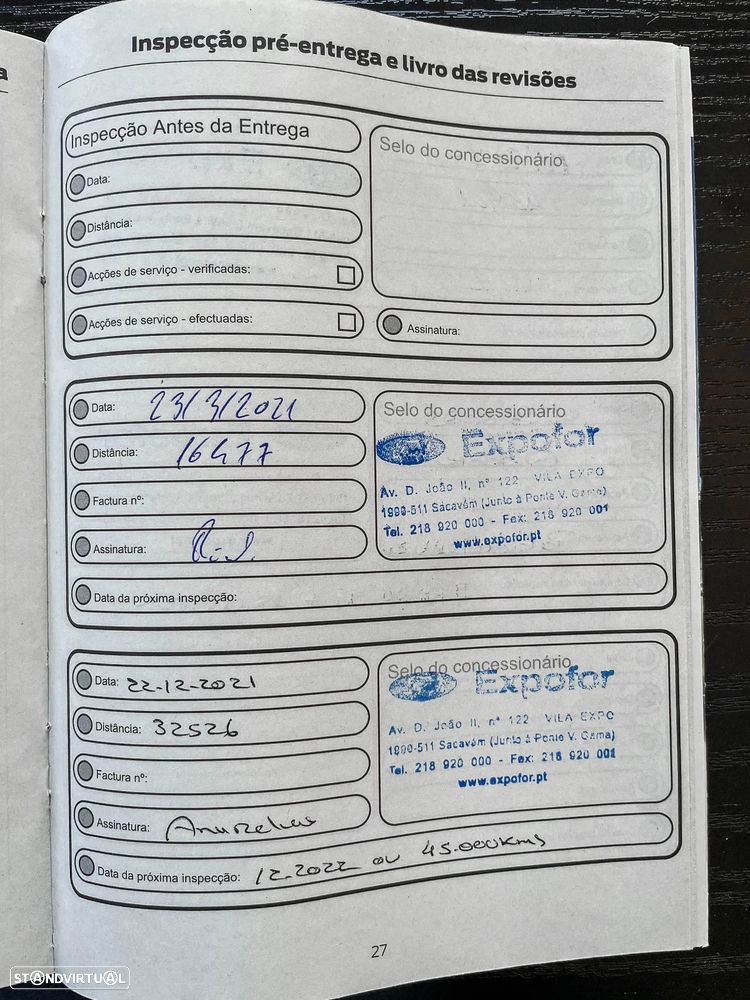 a
Inspecção pré-entrega e livro das revisões
Inspecção Antes da Entrega
Selo do concessionário
Data:
Distância:
Acções de serviço - verificadas:
Acções de serviço - efectuadas:
Assinatura:
Data: 23/3/2021
Selo do concessionário
Expofor
Distância: 16477
Av. D. João II, nº 122 VILA EXPO
1990-511 Sacavém (Junto à Ponte V. Gama)
Factura nº:
Tel. 218 920 000 - Fax: 218 920 001
www.expofor.pt
Assinatura:
Data da próxima inspecção:
Data: 22-12-2021
Selo do concessionário
Expofor
Distância: 32526
Av. D. João II, nº 122 VILA EXPO
1990-511 Sacavém (Junto à Ponte V. Gama)
Factura nº:
Tel. 218 920 000 - Fax: 218 920 001
www.expofor.pt
Assinatura:
Data da próxima inspecção: 12-2022 ou 45.000Kms
27
STANDVIRTUAL